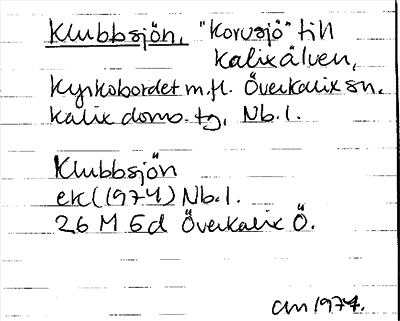 Klubbsjön, "korvsjö" till
Kalixälven,
Kyrkobordet m.fl. Överkalix sn.
Kalix doms. tg, Nb. l.
Klubbsjön
ek (1974) Nb. l.
26 M 5d Överkalix Ö.
am 1974.